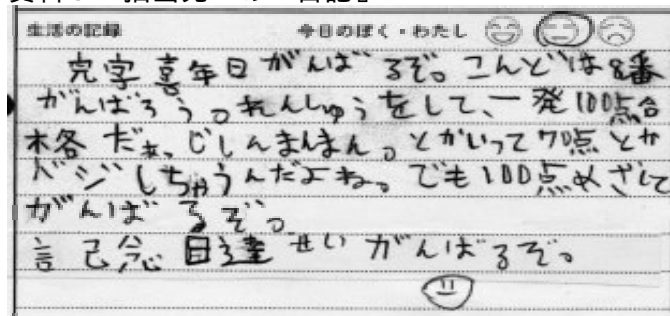 生活の記録 今日のぼく・わたし
字 年日がんばるぞ。こんどは8番
がんばろうっれんしゅうをして、一発100点合
格だぁ、じしんまんまん。とかいって70点とか
ベジしちゃうんだよね。でも100点めざして
がんばるぞっ
記念 目達せいがんばるぞっ